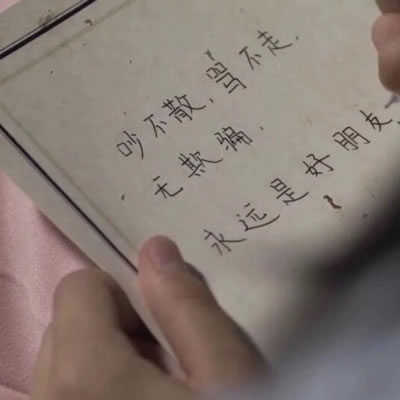 吵不散，骂不走，
无欺骗，
永远是好朋友，